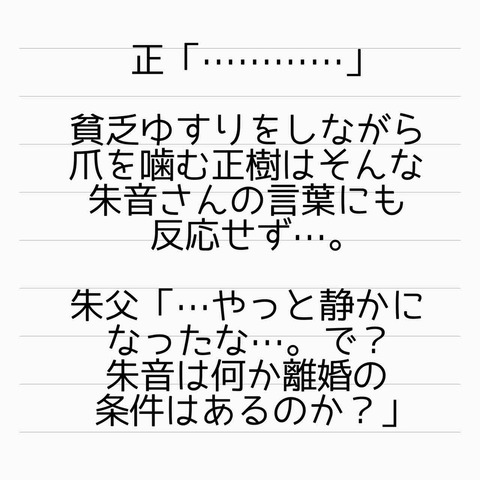 正「…………」
貧乏ゆすりをしながら
爪を噛む正樹はそんな
朱音さんの言葉にも
反応せず…。
朱父「…やっと静かに
なったな…。で？
朱音は何か離婚の
条件はあるのか？」